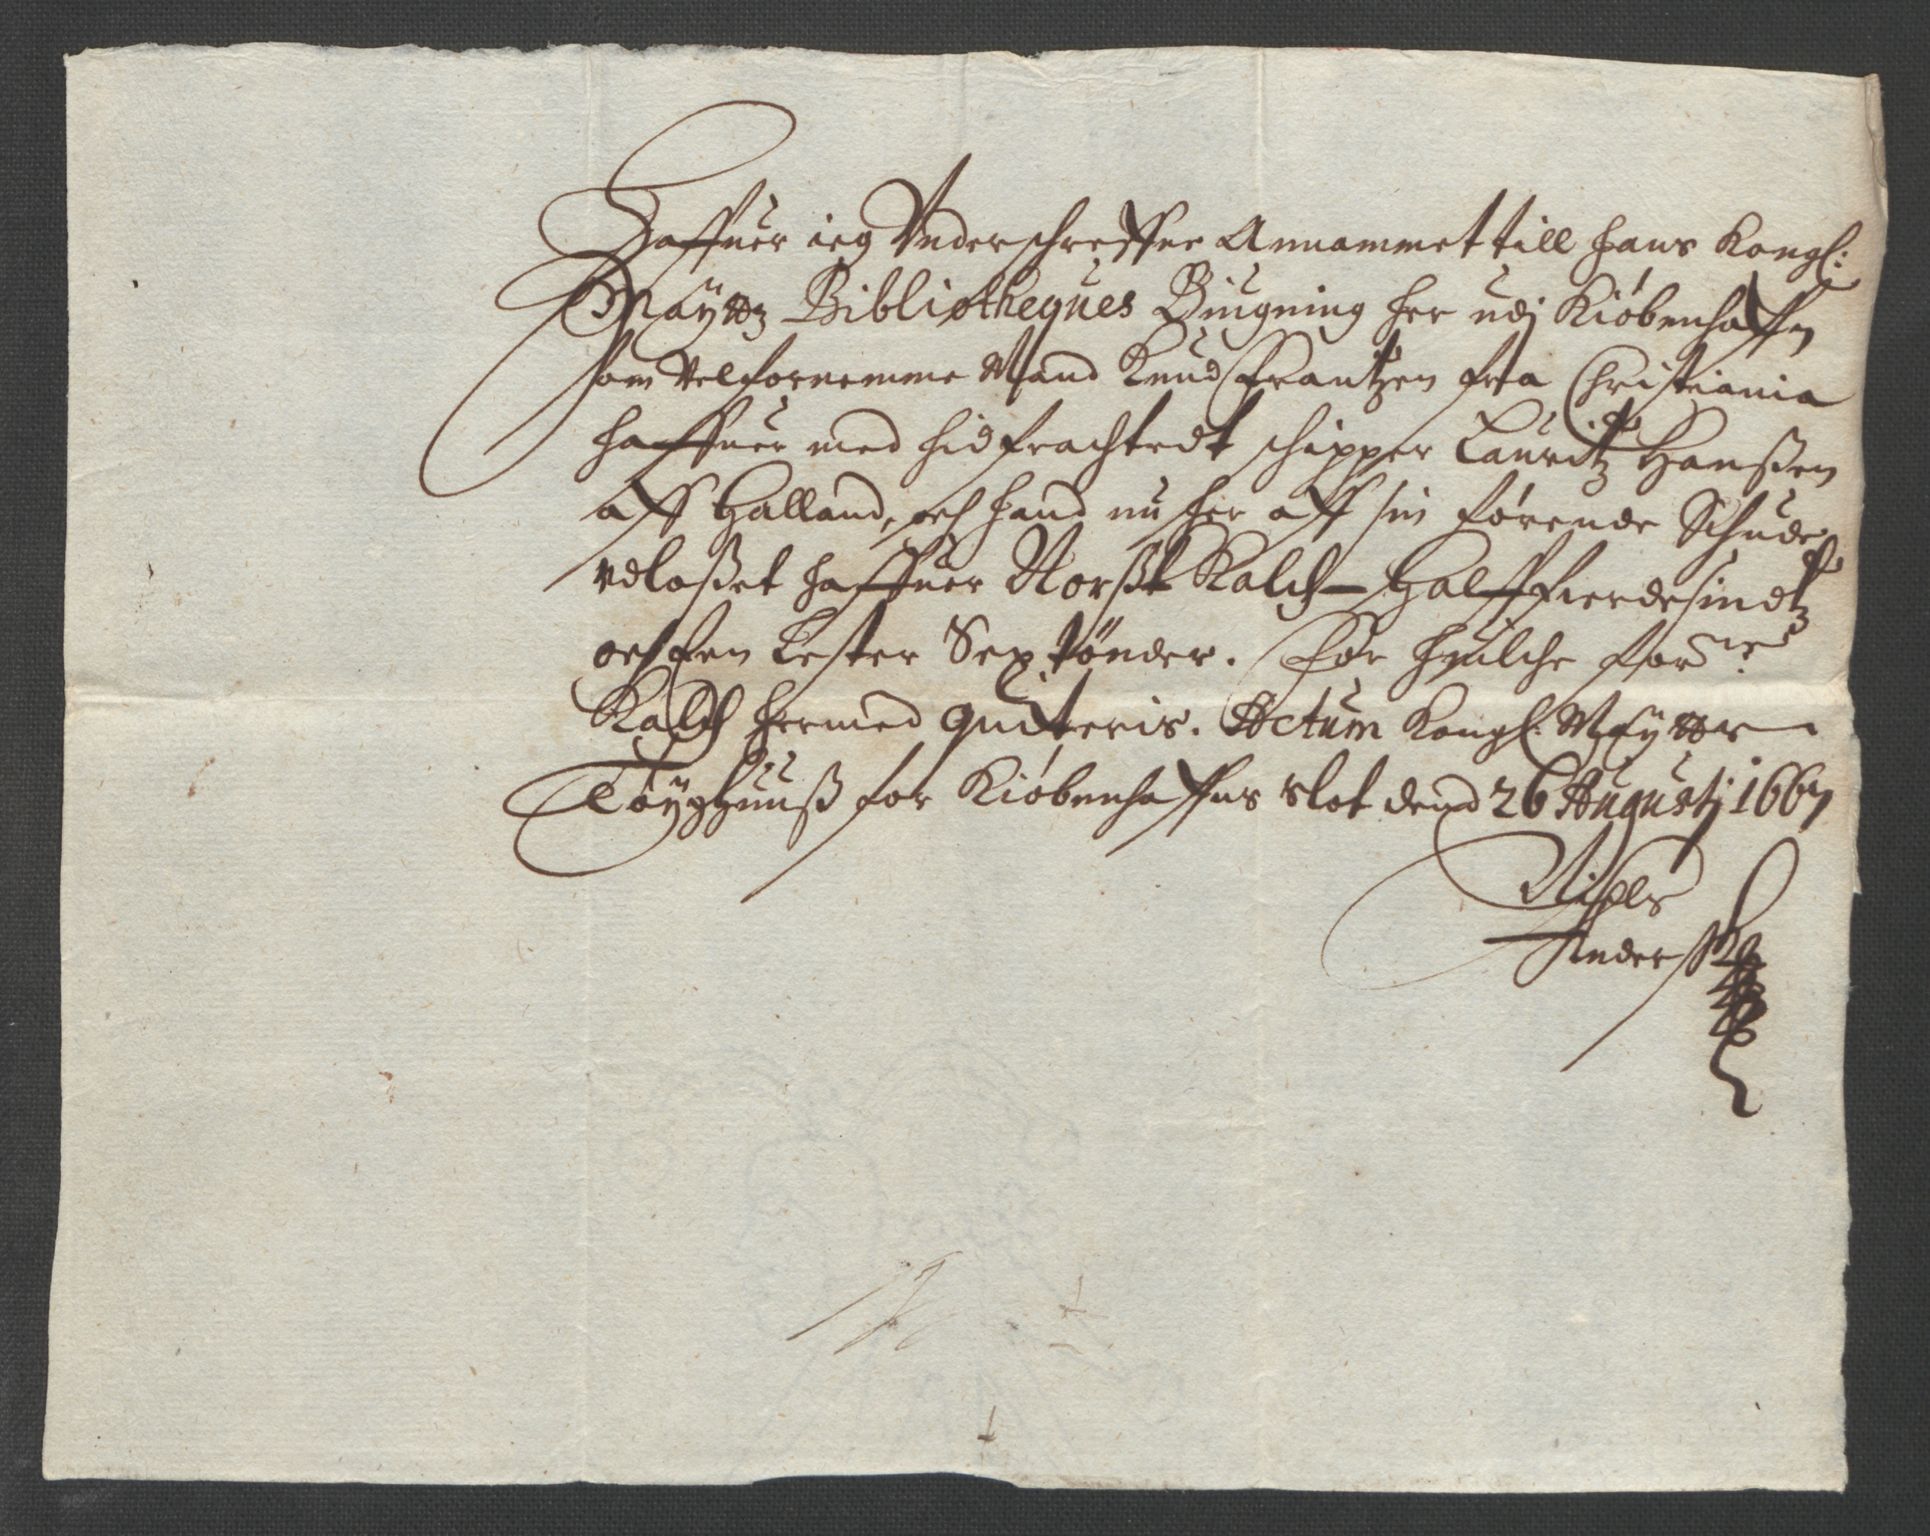 Haffuer ieg Underschreffne Annammet till hans Kongl:
Maÿttz Bibliotheques Biugning her udj Kiöbenhaffn
som velfornemme Mand Knud Frantzen fra Christiania
haffuer med hidfrachtedt schipper Lauritz Hanßen
aff Halland, och hand nu her aff sin förende Schude
udloßet haffuer Norßk Kalch - Halffierdesindtz
och fem Lester Sex tönder. For huilche forne
Kalch hermed quiteris. Actum Kongl. Mayttz
Töÿghuuß for Kiöbenhaffns slot dend 26 Augustj 1667
Niels
Anderß